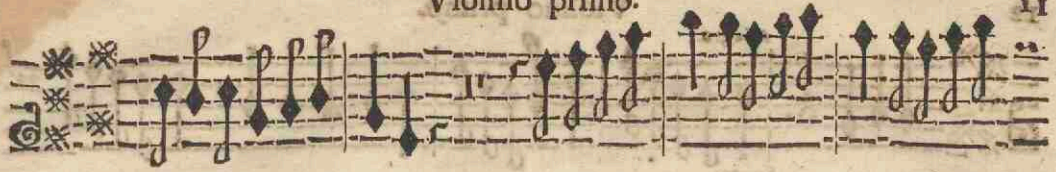 Violino primo. 11